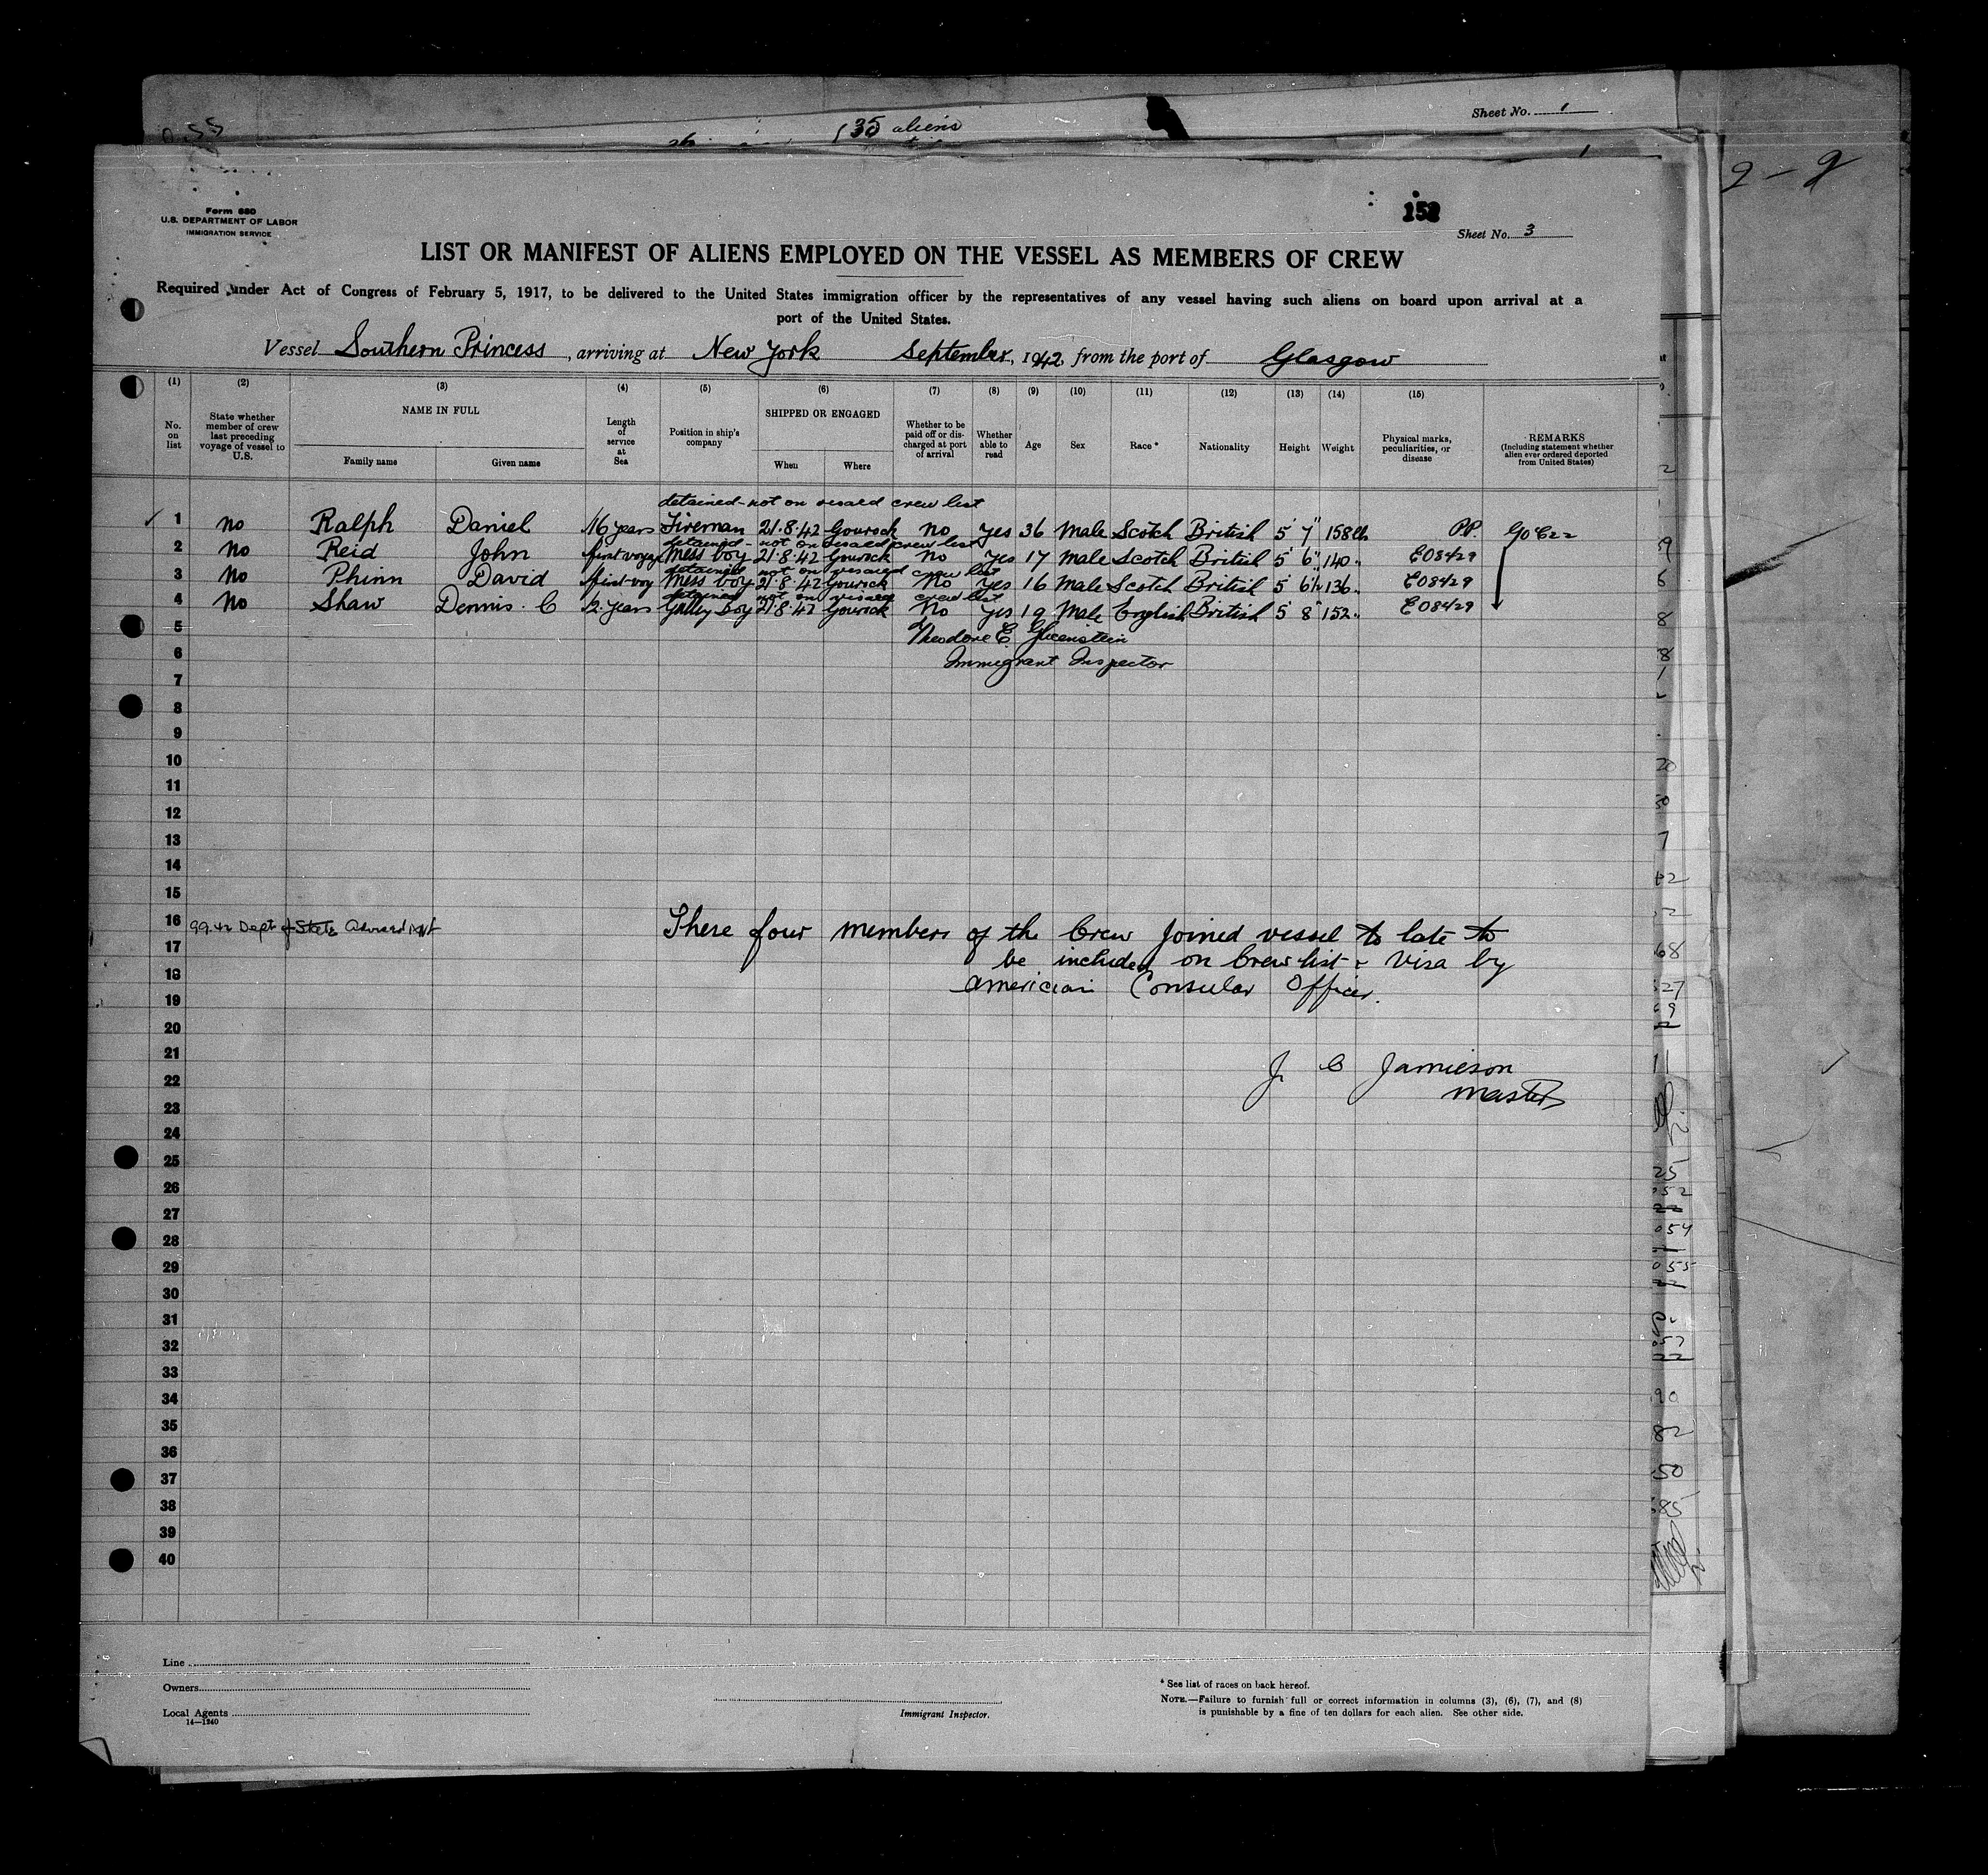 Sheet No. 1
35 aliens
2 - 2
Form 680
U.S. DEPARTMENT OF LABOR
IMMIGRATION SERVICE
152
Sheet No. 3
LIST OR MANIFEST OF ALIENS EMPLOYED ON THE VESSEL AS MEMBERS OF CREW
Required under Act of Congress of February 5, 1917, to be delivered to the United States immigration officer by the representatives of any vessel having such aliens on board upon arrival at a
port of the United States.
Vessel Southern Princess, arriving at New York September, 1942 from the port of Glasgow
(1) (2) (3) (4) (5) (6) (7) (8) (9) (10) (11) (12) (13) (14) (15)
No. on list State whether member of crew last preceding voyage of vessel to U.S. NAME IN FULL Family name Given name Length of service at Sea Position in ship's company SHIPPED OR ENGAGED When Where Whether to be paid off or discharged at port of arrival Whether able to read Age Sex Race * Nationality Height Weight Physical marks, peculiarities, or disease REMARKS (Including statement whether alien ever ordered deported from United States)
detained - not on visaed crew list
1 No Ralph Daniel 16 years Fireman 21.8.42 Gourock No Yes 36 Male Scotch British 5' 7" 158 lb P.P.
detained - not on visaed crew list
2 No Reid John first voyage Mess boy 21.8.42 Gourock No Yes 17 Male Scotch British 5' 6" 140 " E08429
detained not on visaed crew list
3 No Phinn David first voy Mess boy 21.8.42 Gourock No Yes 16 Male Scotch British 5' 6½ 136 " E08429
detained not on visaed crew list
4 No Shaw Dennis. C 2 years Galley Boy 21.8.42 Gourock No Yes 19 Male English British 5' 8" 152 " E08429
5 Theodore E
6 Immigrant Inspector
7
8
9
10
11
12
13
14
15
16 9.9.42 Dept of State advised
These four members of the Crew Joined vessel to late to
17
be included on Crew list & Visa by
18
American Consular Officer.
19
20
21
J. C Jamieson
22
Master
23
24
25
26
27
28
29
30
31
32
33
34
35
36
37
38
39
40
Line
Owners
Local Agents
14—1240
Immigrant Inspector.
* See list of races on back hereof.
NOTE.—Failure to furnish full or correct information in columns (3), (6), (7), and (8)
is punishable by a fine of ten dollars for each alien. See other side.